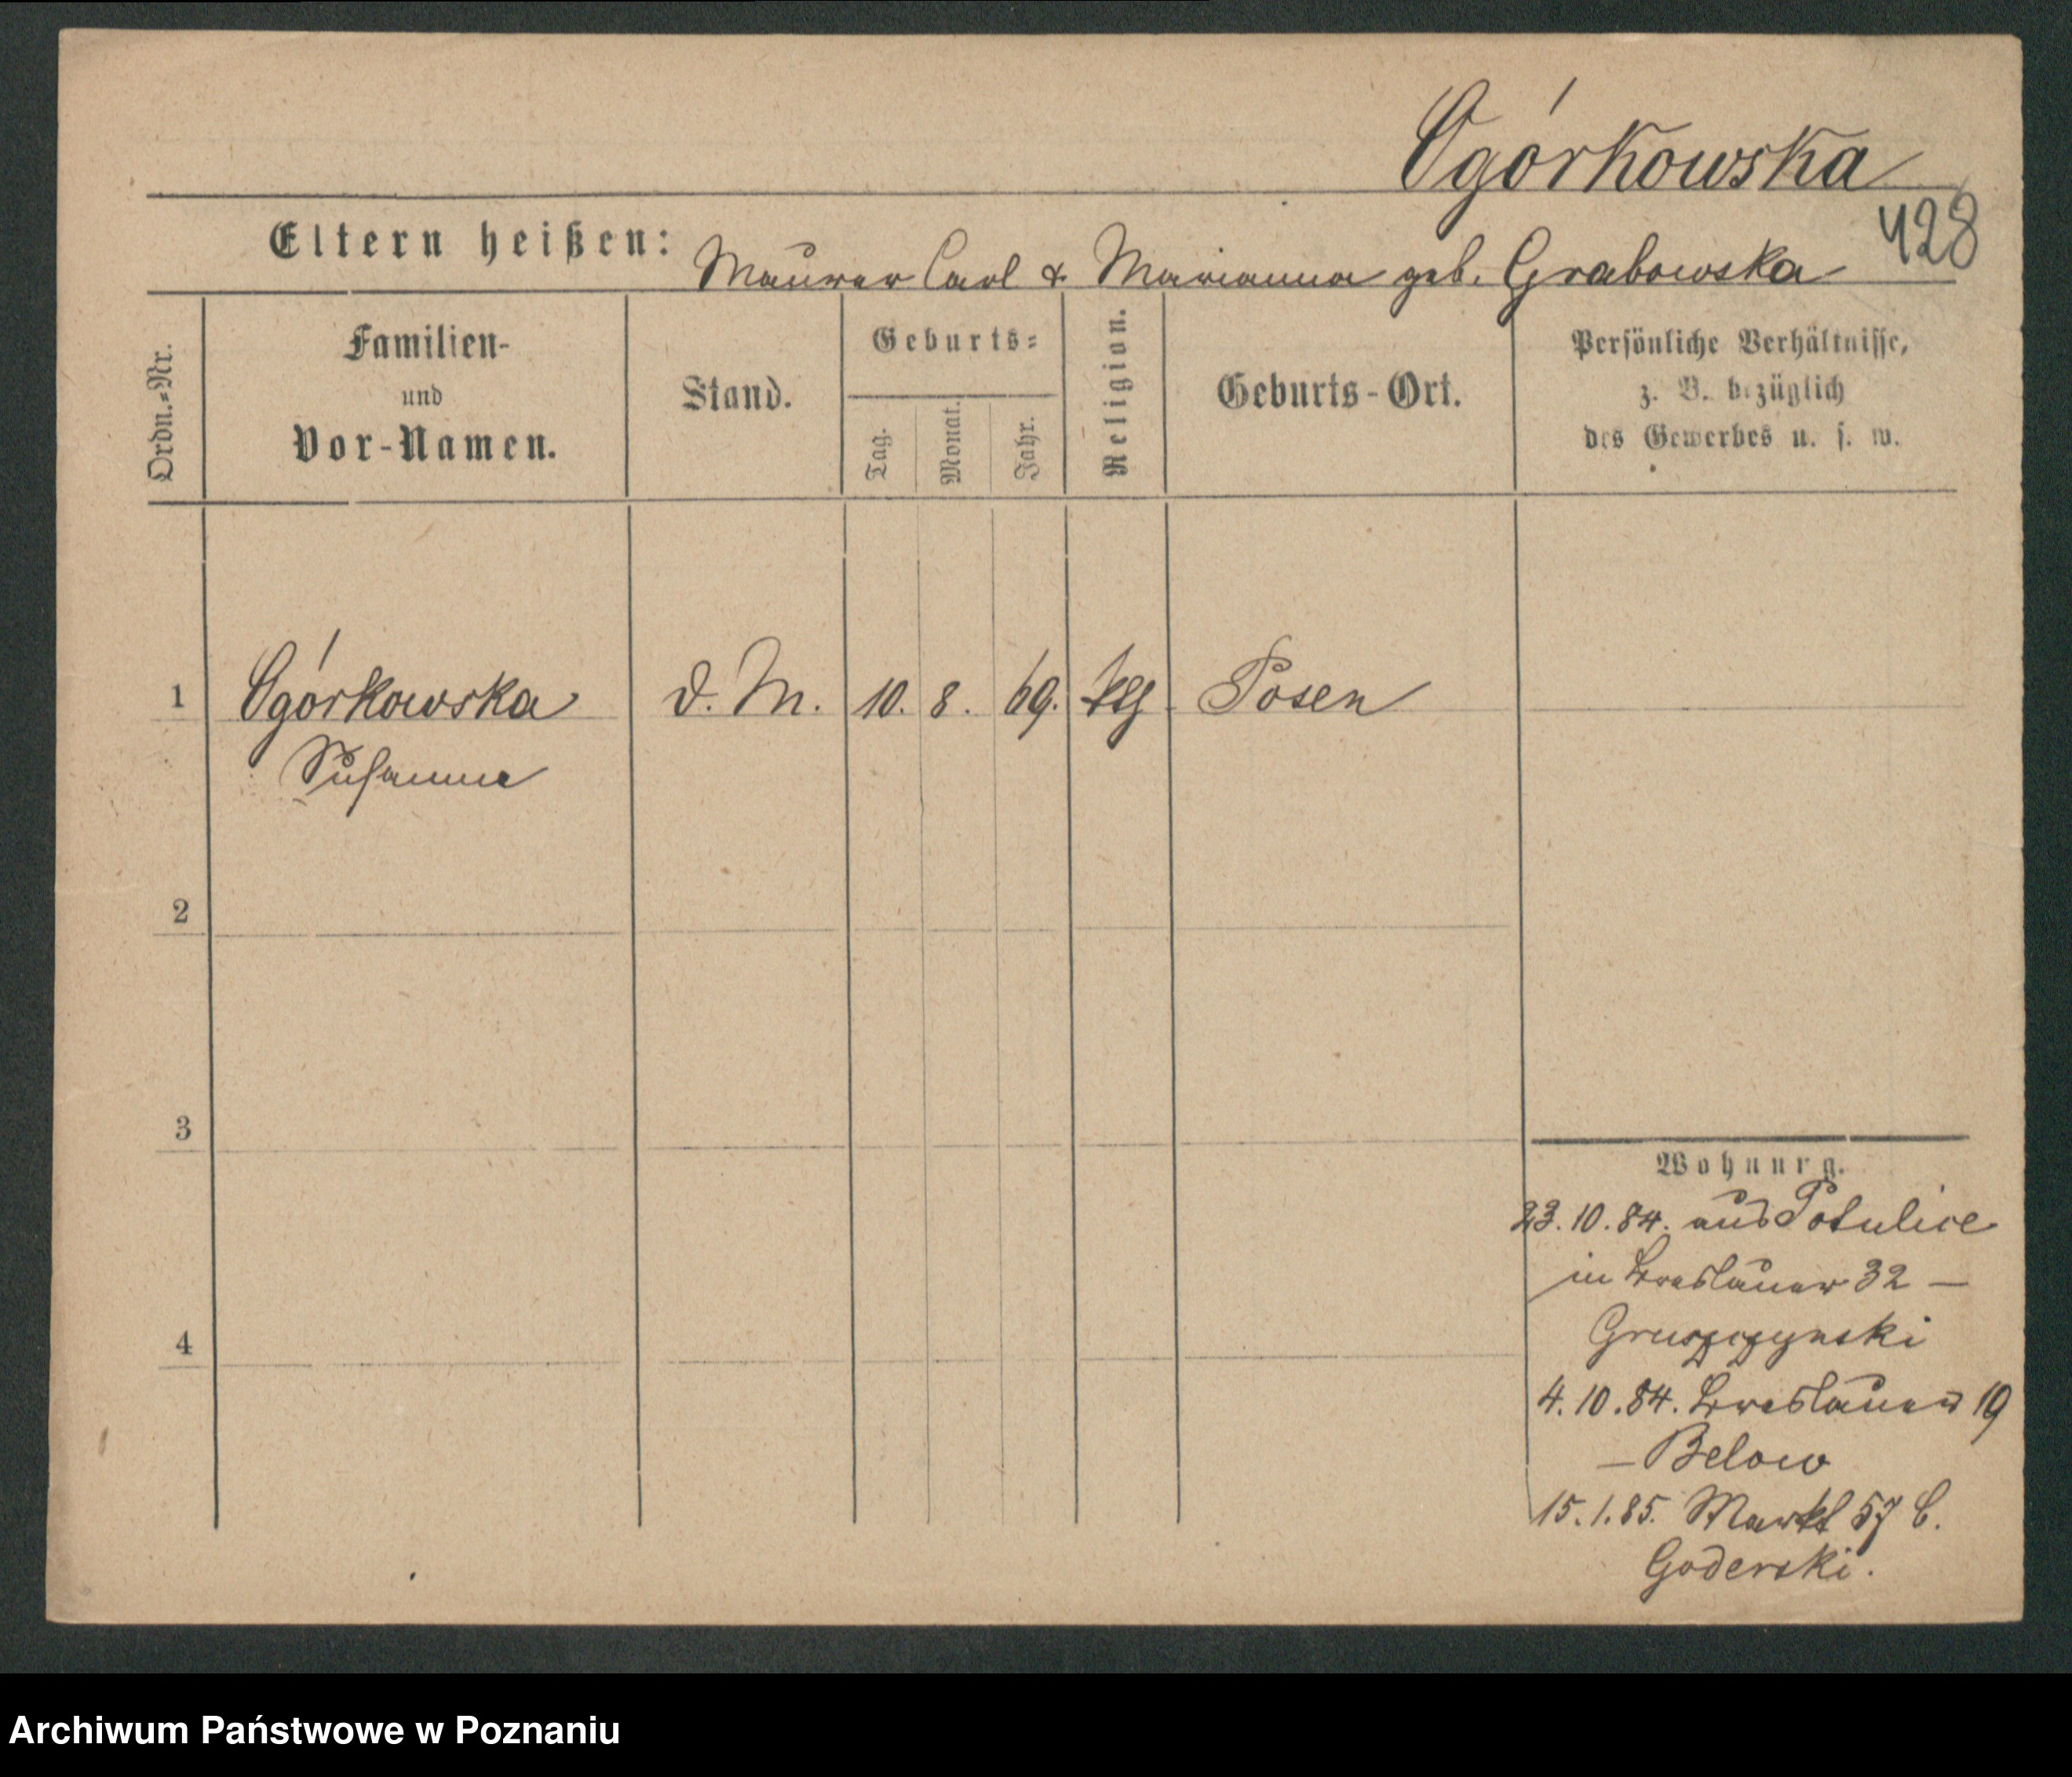 Ogórkowska
428
Eltern heißen: Maurer Carl & Marianna geb. Grabowska
Ordn.-Nr.
Familien-
und
Vor-Namen.
Stand.
Geburts-
Tag.
Monat.
Jahr.
Religion.
Geburts-Ort.
Persönliche Verhältnisse,
z. B. bezüglich
des Gewerbes u. s. w.
1 Ogórkowska d. M. 10. 8. 69. ktl Posen
Susanna
2
3
4
Wohnung.
23.10.84. aus Potulice
in Breslauer 32 –
Gruszczynski
4.10.84. Breslauer 19
– Below
15.1.85. Markt 57 b.
Goderski.
Archiwum Państwowe w Poznaniu